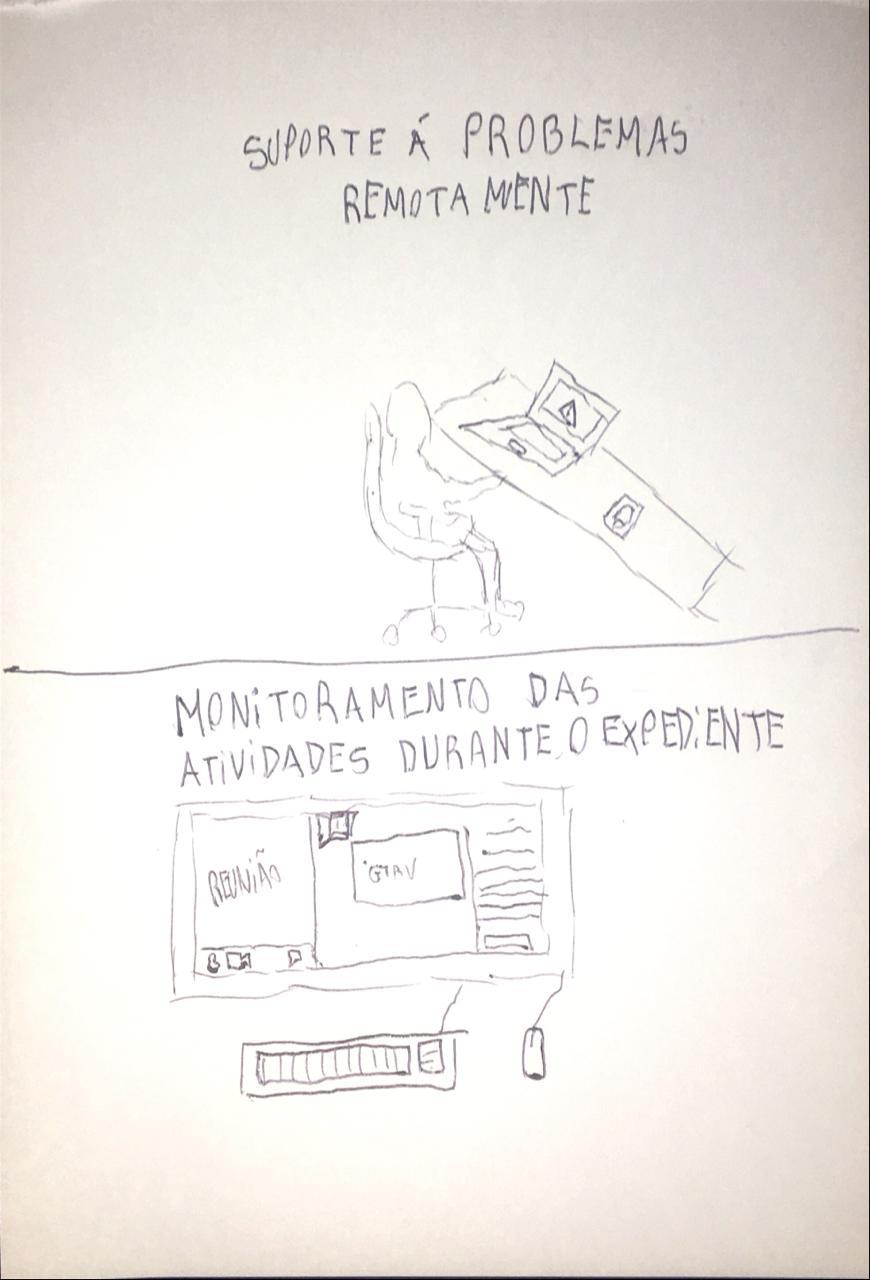 SUPORTE Á PROBLEMAS
REMOTAMENTE
MONITORAMENTO DAS
ATIVIDADES DURANTE O EXPEDIENTE
REUNIÃO
GTAV